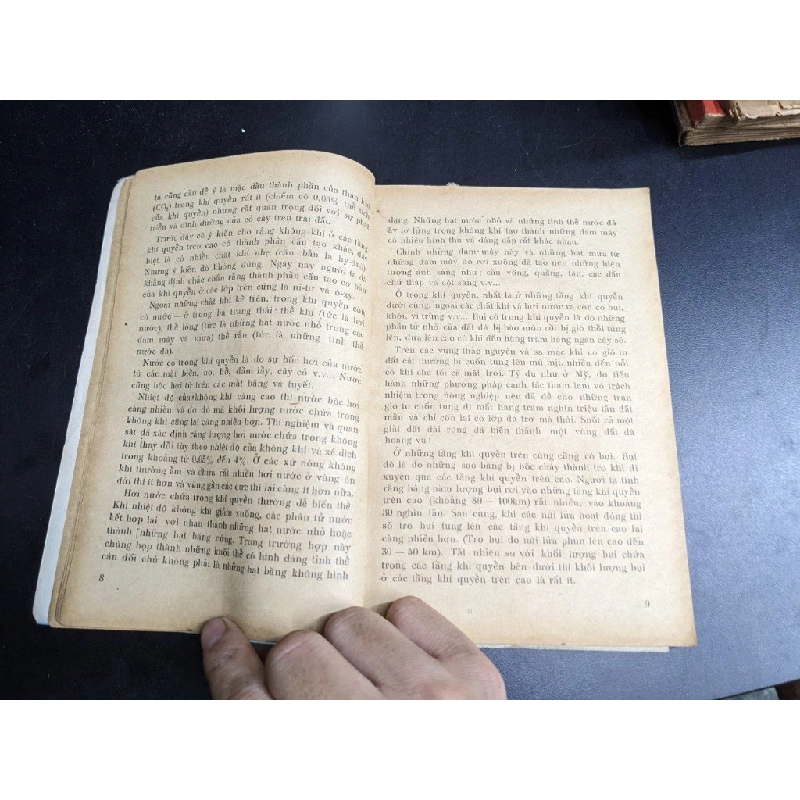 ta cũng cần để ý là mặc dầu thành phần của than khí
(CO₂) trong khí quyển rất ít (chiếm có 0,03% thể tích
của khí quyển) nhưng rất quan trọng đối với sự phát
miễn và dinh dưỡng của cỏ cây trên trái đất.
Trước đây có ý kiến cho rằng không khí ở các tầng
khí quyển trên cao có thành phần cấu tạo khác, đặc
biệt là có nhiều chất khí nhẹ (căn bản là hy-đrô)
Nhưng ý kiến đó không đúng. Ngày nay người ta đã
khẳng định chắc chắn rằng thành phần cấu tạo cơ bản
của khí quyển ở các lớp trên cùng là ni-tơ và ô-xy.
Ngoài những chất khí kể trên, trong khí quyển còn
có nước — ở trong ba trạng thái: thể khí (tức là hơi
nước), thể lỏng (tức là những hạt nước nhỏ trong các
đám mây và mưa) thể rắn (tức là những tinh thể
nước đá).
Nước có trong khí quyển là do sự bốc hơi của nước
từ các mặt biển, ao, hồ, đầm lầy, cây cỏ v.v... Nước
cũng bốc hơi từ trên các mặt băng và tuyết.
Nhiệt độ của không khí càng cao thì nước bốc hơi
càng nhiều và do đó mà khối lượng nước chứa trong
không khí cũng lại càng nhiều hơn. Thí nghiệm và quan
sát đã xác định rằng lượng hơi nước chứa trong không
khí thay đổi tùy theo nhiệt độ của không khí và xê dịch
trong khoảng từ 0,02% đến 4%. Ở các xứ nóng không
khí thường ẩm và chứa rất nhiều hơi nước ở vùng ôn
đới thì ít hơn và vùng gần các cực thì lại càng ít hơn nữa.
Hơi nước chứa trong khí quyển thường dễ biến thể
Khi nhiệt độ không khí giảm xuống, các phân tử nước
kết hợp lại với nhau thành những hạt nước nhỏ hoặc
thành những hạt băng cứng. Trong trường hợp này
chúng hợp thành những khối thể có hình dáng tinh thể
cân đối chứ không phải là những hạt băng không hình
8
dạng. Những hạt nước nhỏ và những tinh thể nước đá
ấy lơ lửng trong không khí tạo thành những đám mây
có nhiều hình thù và dáng cấp rất khác nhau.
Chính những đám mây này và những hạt mưa từ
những đám mây đó rơi xuống để tạo nên những hiện
tượng ánh sáng như: cầu vồng, quầng, tán, các dấu
chữ thập và cột sáng v.v...
Ở trong khí quyển, nhất là ở những tầng khí quyển
dưới cùng, ngoài các chất khí và hơi nước ra còn có bụi,
khói, vi trùng v.v... Bụi có trong khí quyển là do những
phần tử nhỏ của đất đá bị bào mòn rồi bị gió thổi tung
lên, đưa lên cao có khi đến hàng trăm hàng ngàn cây số.
Trên các vùng thảo nguyên và sa mạc khi có gió to
đất cát thường bị cuốn tung lên mù mịt, nhiều đến nỗi
có khi che tối cả mặt trời. Tỷ dụ như ở Mỹ, do tiến
hành những phương pháp canh tác tham lam vô trách
nhiệm trong nông nghiệp nên đã để cho những trận
gió to cuốn tung đi mất hàng trăm nghìn triệu tấn đất
mầu và chỉ còn lại có lớp đá trơ mà thôi. Suốt cả một
giải đất dài rộng đã biến thành một vùng đất đá
hoang vu!
Ở những tầng khí quyển trên cùng cũng có bụi. Bụi
đó là do những sao băng bị bốc cháy thành tro khi đi
xuyên qua các tầng khí quyển trên cao. Người ta tính
rằng hàng năm lượng bụi rơi vào những tầng khí quyển
trên cao (khoảng 80 — 100km) rất nhiều, vào khoảng
30 nghìn tấn. Sau cùng, khi các núi lửa hoạt động thì
số tro bụi tung lên các tầng khí quyển trên cao lại
càng nhiều hơn. (Tro bụi do núi lửa phun lên cao đến
30 — 50 km). Tất nhiên so với khối lượng bụi chứa
trong các tầng khí quyển bên dưới thì khối lượng bụi
ở các tầng khí quyển trên cao là rất ít.
9